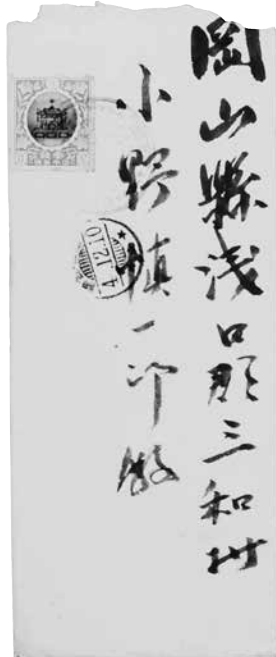 岡山縣浅口郡三和村
小野慎一郎殿
4.12.10